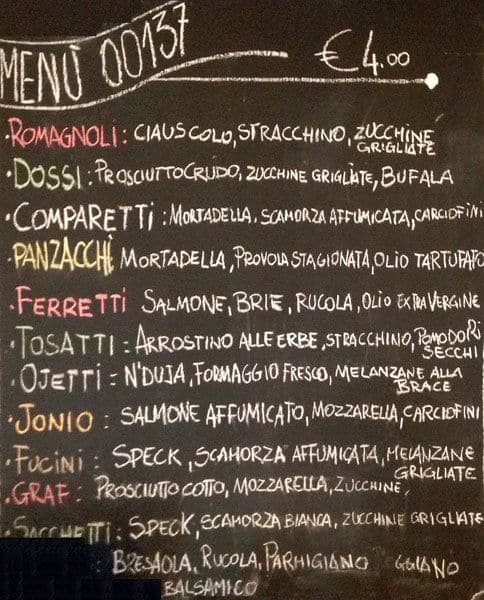 MENÙ 00137
€4.00
·ROMAGNOLI: CIAUSCOLO, STRACCHINO, ZUCCHINE
GRIGLIATE
·DOSSI: PROSCIUTTO CRUDO, ZUCCHINE GRIGLIATE, BUFALA
·COMPARETTI: MORTADELLA, SCAMORZA AFFUMICATA, CARCIOFINI
·PANZACCHI MORTADELLA, PROVOLA STAGIONATA, OLIO TARTUFATO
·FERRETTI SALMONE, BRIE, RUCOLA, OLIO EXTRAVERGINE
·TOSATTI: ARROSTINO ALLE ERBE, STRACCHINO, POMODORI
SECCHI
·OJETTI: N'DUJA, FORMAGGIO FRESCO, MELANZANE ALLA
BRACE
·JONIO: SALMONE AFFUMICATO, MOZZARELLA, CARCIOFINI
·FUCINI: SPECK, SCAMORZA AFFUMICATA, MELANZANE
GRIGLIATE
·GRAF: PROSCIUTTO COTTO, MOZZARELLA, ZUCCHINE
·SACCHETTI: SPECK, SCAMORZA BIANCA, ZUCCHINE GRIGLIATE
: BRESAOLA, RUCOLA, PARMIGIANO
BALSAMICO